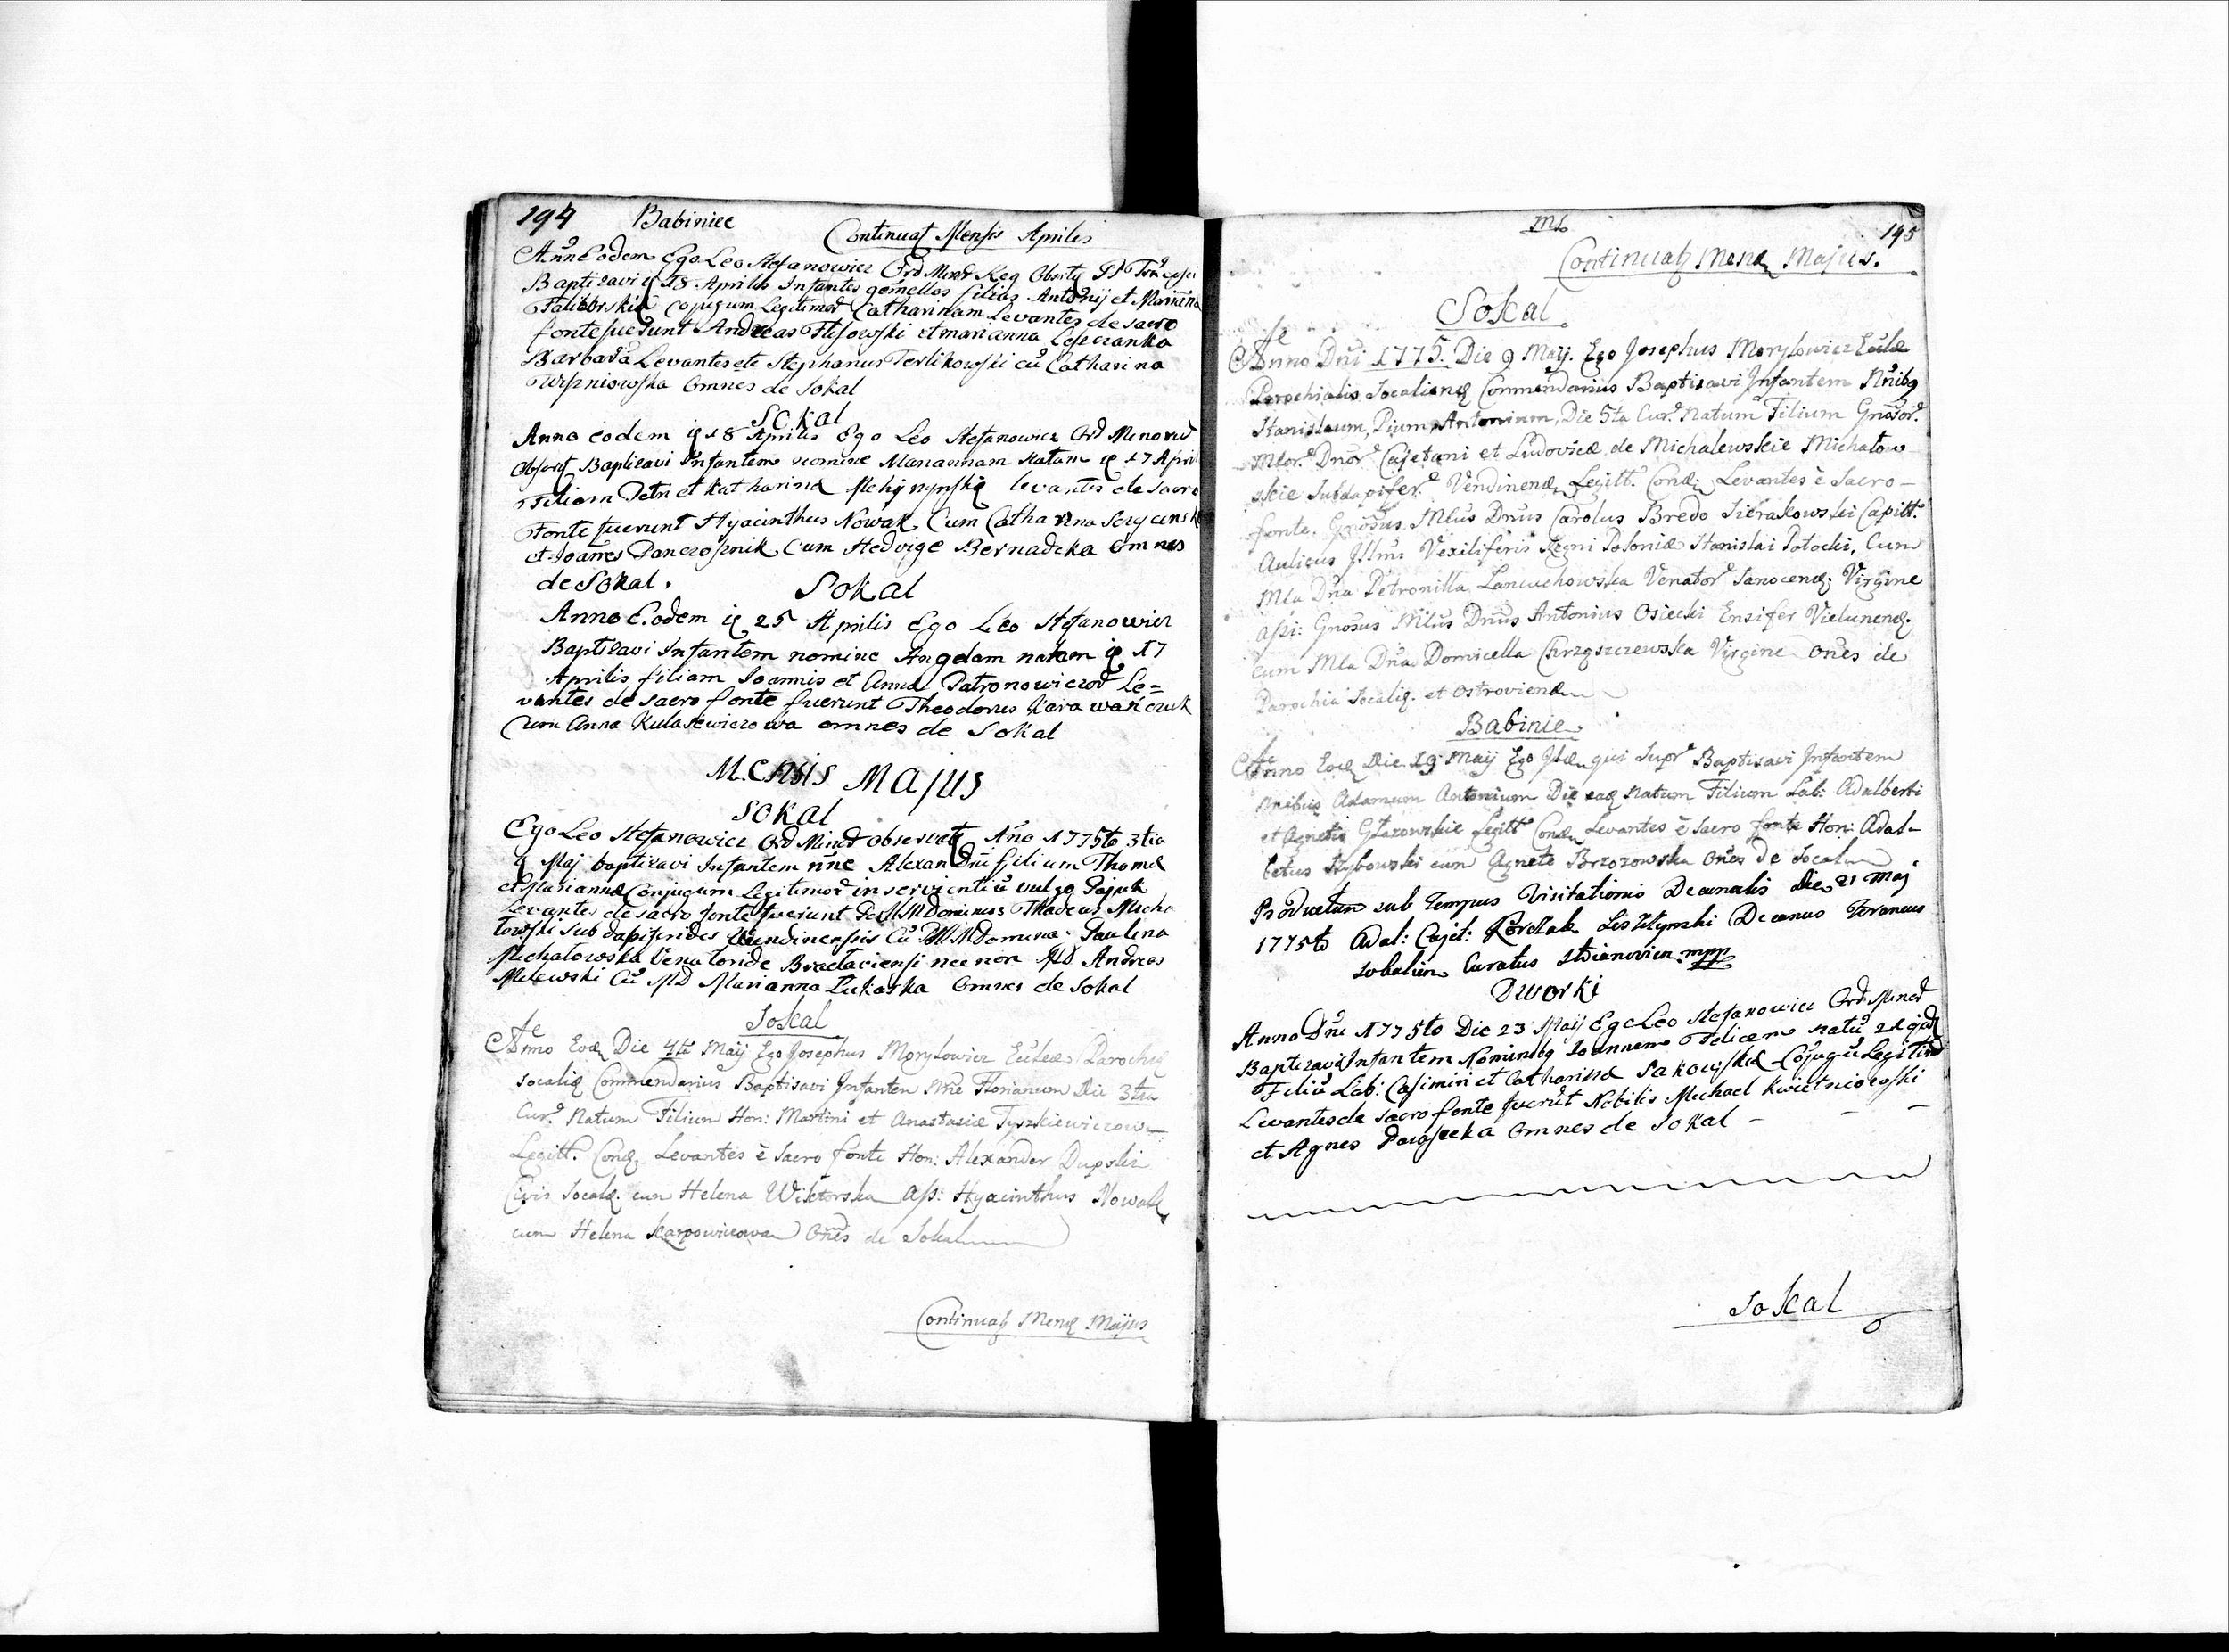 194 Babiniec Continuat Mensis Aprilis
Anno Eodem Ego Leo Stefanowicz Ord Minor Reg Obserq
Baptizavi 18 Aprilis Infantes gemellos filias Antonij et Marianna
conjugum Legitimor Catharinam Levantes de sacro
fonte fuerunt Andreas et marianna
Barbara Levantes Stephanus Terlikowski cu Catharina
Omnes de Sokal
Sokal
Anno eodem 18 Aprilis Ego Leo Stefanowicz Ord Minorum
Observ Baptizavi Infantem nomine Mariannam Natam 17 April
Filiam Petri et Katharina levantes de Sacro
Fonte fuerunt Hyacinthus Nowak Cum Catharina
et Joannes Cum Hedvige Bernadcka omnes
de Sokal.
Sokal
Anno Eodem 25 Aprilis Ego Leo Stefanowicz
Baptizavi Infantem nomine Angelam natam 17
Aprilis filiam Joannis et Anna Patronowiczor Le=
vantes de sacro fonte fuerunt Theodorus Karawańczuk
Cum Anna Kulasewiczowa omnes de Sokal
Mensis Majus
Sokal
Ego Leo Stefanowicz Ord Minor Observat Año 1775to 3tia
Maj baptizavi Infantem nñe Alexandrũ filium Thomæ
et Mariannæ Conjugum Legitimor inservientiũ vulgo Pajuk
Levantes de sacro fonte fuerunt Dominus Thadeus Micha
łowski Subdapiferides Vendinensis Cũ Domina Paulina
Michałowska Venatoride Braclaviensi nec non MD Andreas
Milewski Cũ MD Marianna Omnes de Sokal
Sokal
Anno Eod Die 4ta Maij Ego Josephus Moryłowicz Eccleæ Parochq
Socaliq Commendarius Baptisavi Infantem Nñe Florianum Die 3tia
Cur. Natum Filium Hon: Martini et Anastasiæ Tyszkiewiczow
Legitt. Conq. Levantes è Sacro fonte Hon: Alexander Dupski
Civis Socalq. cum Helena Wiktorska Aſs: Hyacinthus Nowak
cum Helena Karpowiczowa Oñes de Sokal
Continuat Menq Majus
195
Continuat Menq Majus.
Sokal
Anno Dñi 1775. Die 9 Maij. Ego Josephus Moryłowicz Eccleæ
Parochialis Socalienq Commendarius Baptisavi Infantem Nñibq
Stanislaum, Pium, Antoninum, Die 5ta Cur. Natum Filium Gnosor.
Mlor. Dnor. Cajetani et Ludovicæ de Michalewskie Michałow
skie Subdapifer. Vendinenq Legitt. Conq. Levantes è Sacro
fonte. Gnosus Mlus Dnus Carolus Bredo Sierakowski Capitt.
Aulicus Jllmi Vexiliferis Regni Poloniæ Stanislai Potocki, Cum
Mla Dña Petronilla Lancuchowska Venator. Sanocenq. Virgine
aſsi: Gnosus Mlus Dnus Antonius Osiecki Ensifer Vielunenq.
cum Mla Dña Domicella Chrząszczewska Virgine oñes de
Parochia Socaliq. et Ostrovienq
Babinie
Anno Eod Die 19 Maij Ego Jdem qui Supr. Baptisavi Infantem
Nnibus Adamum Antonium Die eaq Natum Filium Lab: Adalberti
et Agnetis Głazowskie Legitt. Conq Levantes è Sacro fonte Hon: Adal-
bertus cum Agnete Brzozowska oñes de Socal
Productum sub Tempus Visitationis Decanalis Die 21 Maj
1775to Adal: Cajet: Decanus Foraneus
Sokalien Curatus mpp
Dworki
Anno Dñi 1775to Die 23 Maij Ego Leo Stefanowicz Ord Minor
Baptizavi Infantem Nominibq Joannem Felicem natũ 21
Filiũ Lab: Casimiri et Catharinæ Sakowskiæ Cõjugũ Legitim
Levantes de sacro fonte fuerũt Nobilis Michael Kwietniowski
et Agnes Omnes de Sokal
Sokal